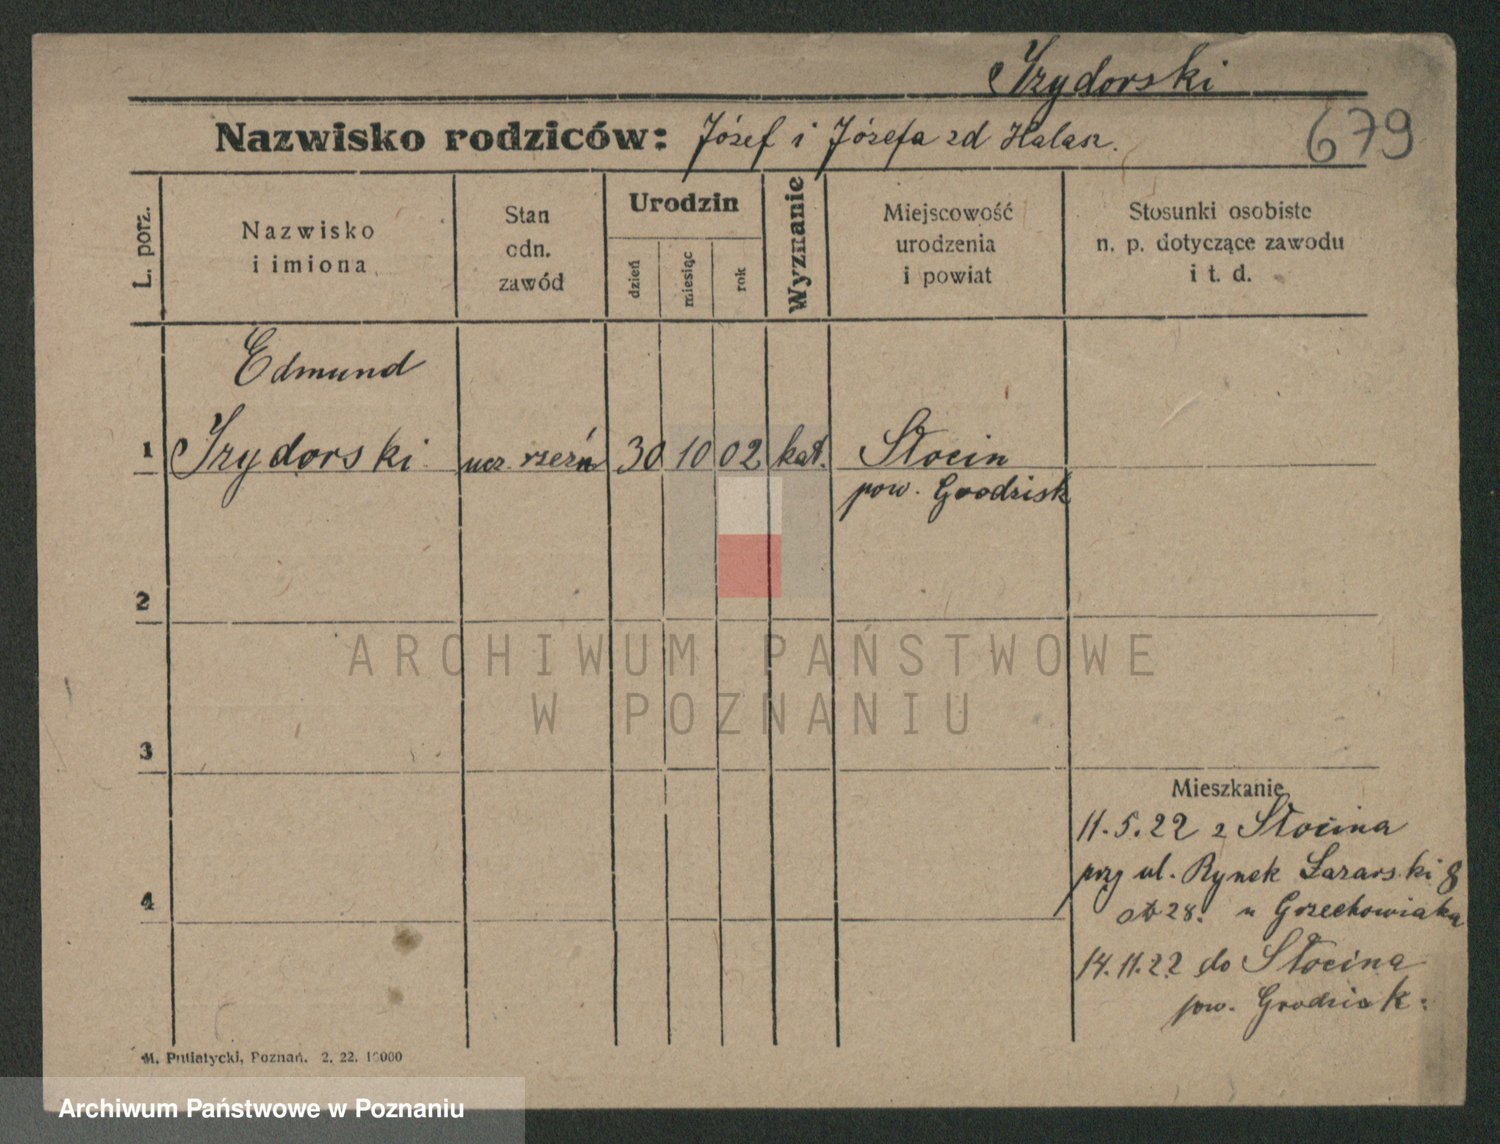 Izydorski
Nazwisko rodziców: Józef i Józefa zd Halasz.
679
L. porz.
Nazwisko
i imiona
Stan
odn.
zawód
Urodzin
dzień
miesiąc
rok
Wyznanie
Miejscowość
urodzenia
i powiat
Stosunki osobiste
n. p. dotyczące zawodu
i t. d.
Edmund
1 Izydorski ucz. rzeźn 30 10 02 kat. Słocin
pow. Grodzisk
2
ARCHIWUM PAŃSTWOWE
W POZNANIU
3
Mieszkanie
11.5.22 z Słocina
przy ul. Rynek Łazarski 8
28. u Grzechowiaka
4
14.11.22 do Słocina
pow. Grodzisk.
M. Putiatycki, Poznań. 2. 22. 10000
Archiwum Państwowe w Poznaniu